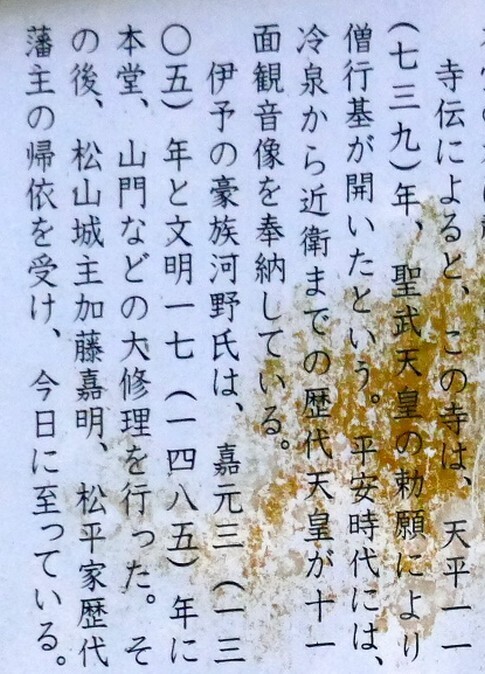 寺伝によると、この寺は、天平一一
(七三九)年、聖武天皇の勅願により
僧行基が開いたという。平安時代には、
冷泉から近衛までの歴代天皇が十一
面観音像を奉納している。
伊予の豪族河野氏は、嘉元三(一三
〇五)年と文明一七(一四八五)年に
本堂、山門などの大修理を行った。そ
の後、松山城主加藤嘉明、松平家歴代
藩主の帰依を受け、今日に至っている。